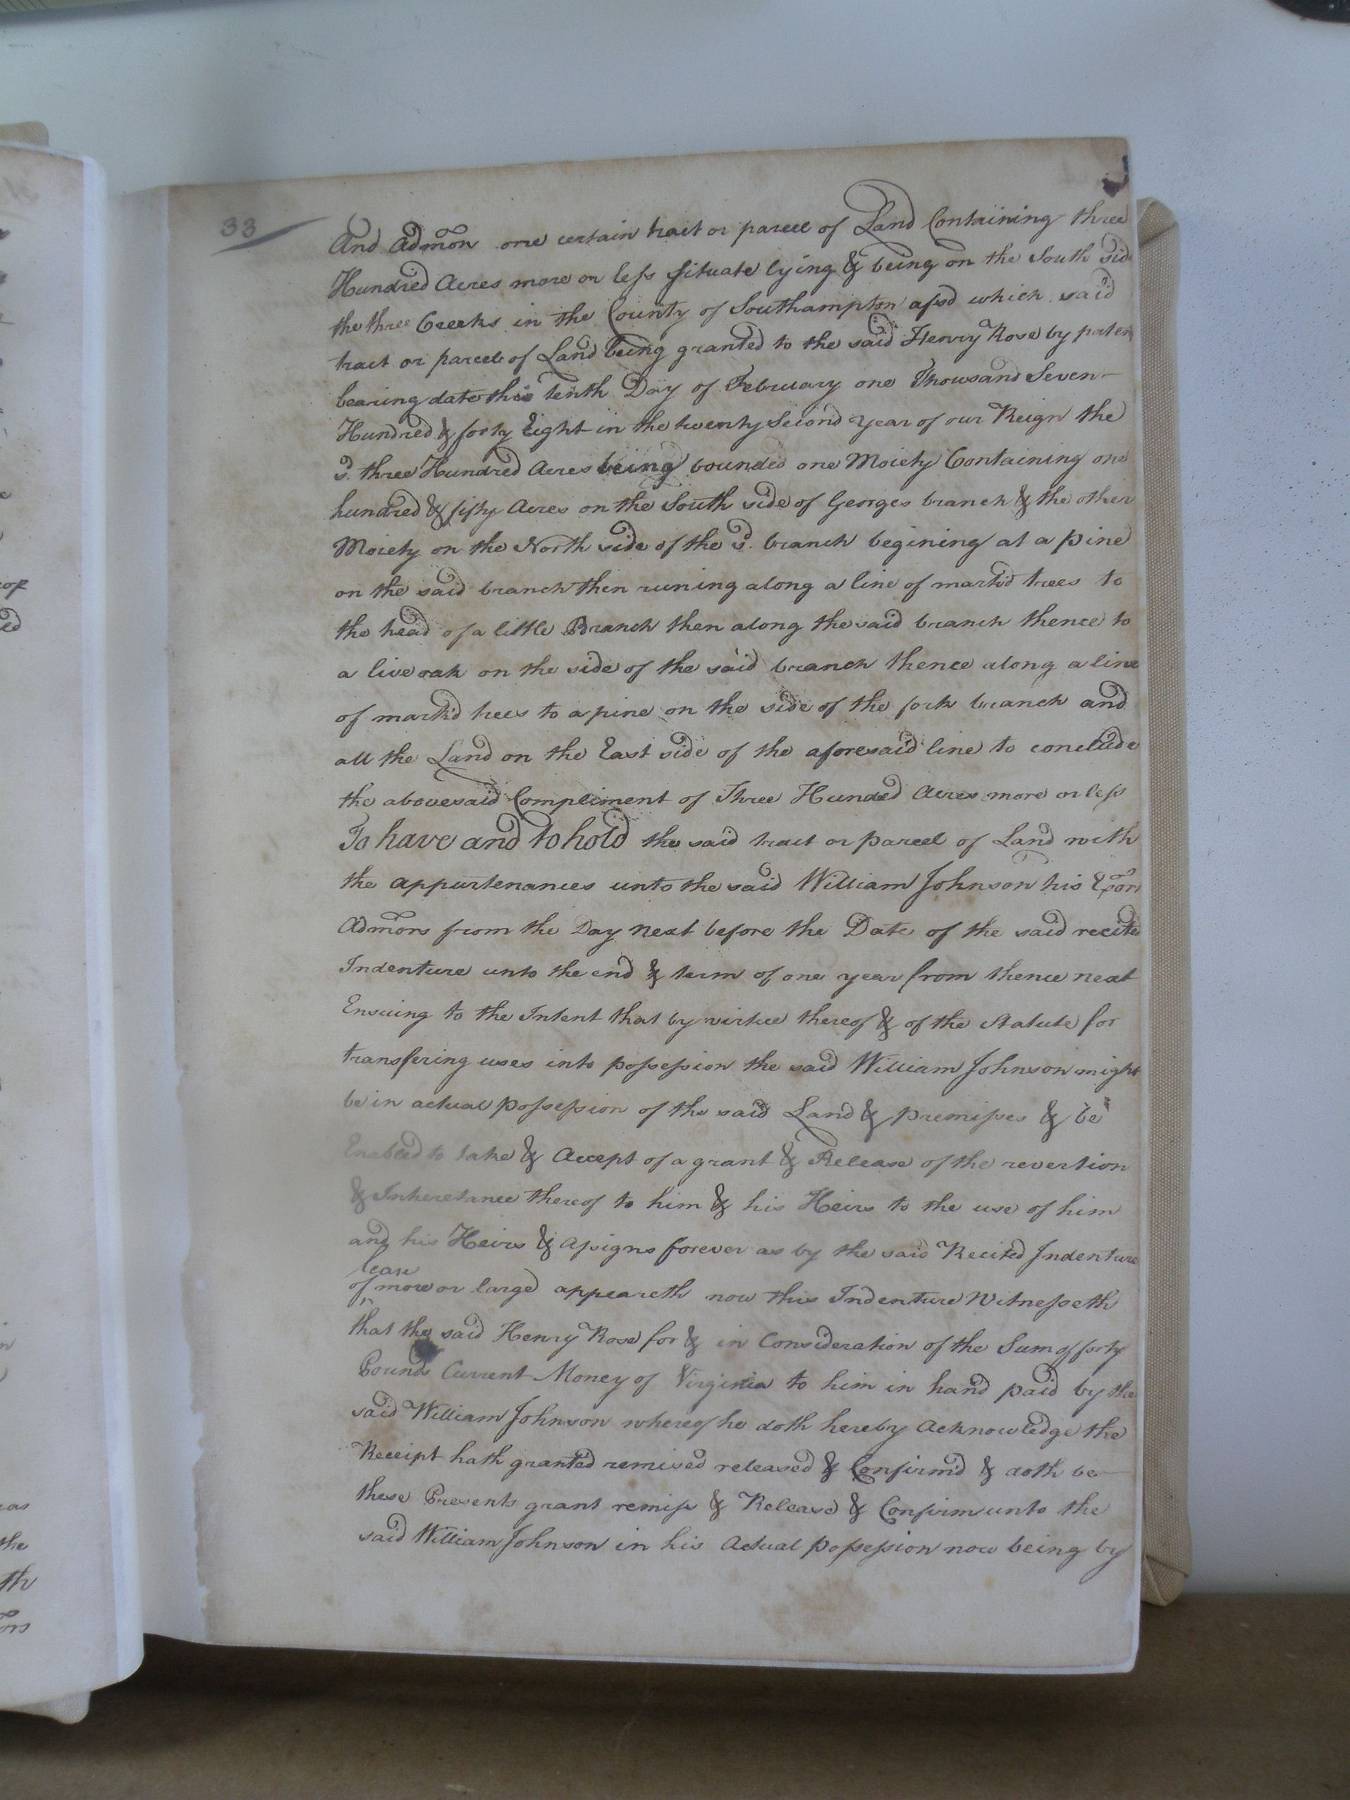 33
And Admon one certain tract or parcel of Land Containing three
Hundred Acres more or less situate lying & being on the South Side
the three Creeks in the County of Southampton afsd which said
tract or parcel of Land being granted to the said Henry Rose by paten
bearing date this tenth Day of February one Thousand Seven-
Hundred & forty Eight in the twenty Second year of our Reign the
sd. three Hundred Acres being bounded one Moiety Containing one
hundred & fifty Acres on the South side of Georges branch & the other
Moiety on the North side of the sd. branch begining at a pine
on the said branch then runing along a line of markd trees to
the head of a little Branch then along the said branch thence to
a live oak on the side of the said branch thence along a line
of markd trees to a pine on the side of the fork branch and
all the Land on the East side of the aforesaid line to conclude
the abovesaid Compliment of Three Hunded Acres more or less
To have and to hold the said tract or parcel of Land with
the appurtenances unto the said William Johnson his Exors
Admors from the Day next before the Date of the said recited
Indenture unto the end & term of one year from thence next
Ensuing to the Intent that by virtue thereof & of the Statute for
transfering uses into possession the said William Johnson might
be in actual possession of the said Land & premisses & be
Enabled to take & Accept of a grant & Release of the revertion
& Inheretance thereof to him & his Heirs to the use of him
and his Heirs & Asigns forever as by the said Recited Indenture
lease
of more or large appeareth now this Indenture Witnesseth
that the said Henry Rose for & in Consideration of the Sum of forty
Pounds Current Money of Virginia to him in hand paid by the
said William Johnson whereof he doth hereby Acknowledge the
Receipt hath granted remised released & Confirmd & doth be-
these Presents grant remiss & Release & Confirm unto the
said William Johnson in his Actual possession now being by